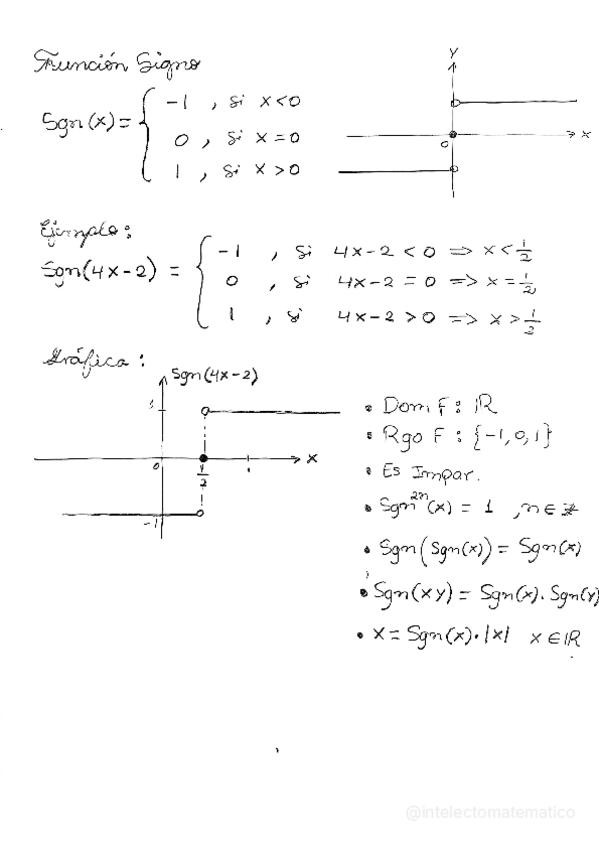 Función Signo
Sgn(x) = { -1 , si x<0
0 , si x = 0
1 , si x > 0
Y
0
x
Ejemplo:
Sgn(4x-2) = { -1 , si 4x-2 < 0 ⇒ x < 1/2
0 , si 4x-2 = 0 ⇒ x = 1/2
1 , si 4x-2 > 0 ⇒ x > 1/2
Gráfica:
Sgn(4x-2)
1
0
1/2
1
x
-1
• Dom F : ℝ
• Rgo F : {-1, 0, 1}
• Es Impar.
• Sgn²ⁿ(x) = 1 , n ∈ ℤ
• Sgn(Sgn(x)) = Sgn(x)
• Sgn(xy) = Sgn(x). Sgn(y)
• x = Sgn(x)·|x| x ∈ ℝ
@intelectomatematico